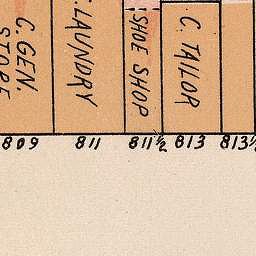 C. GEN.
STORE
C. LAUNDRY
SHOE SHOP
C. TAILOR
809 811 811½ 813 813½